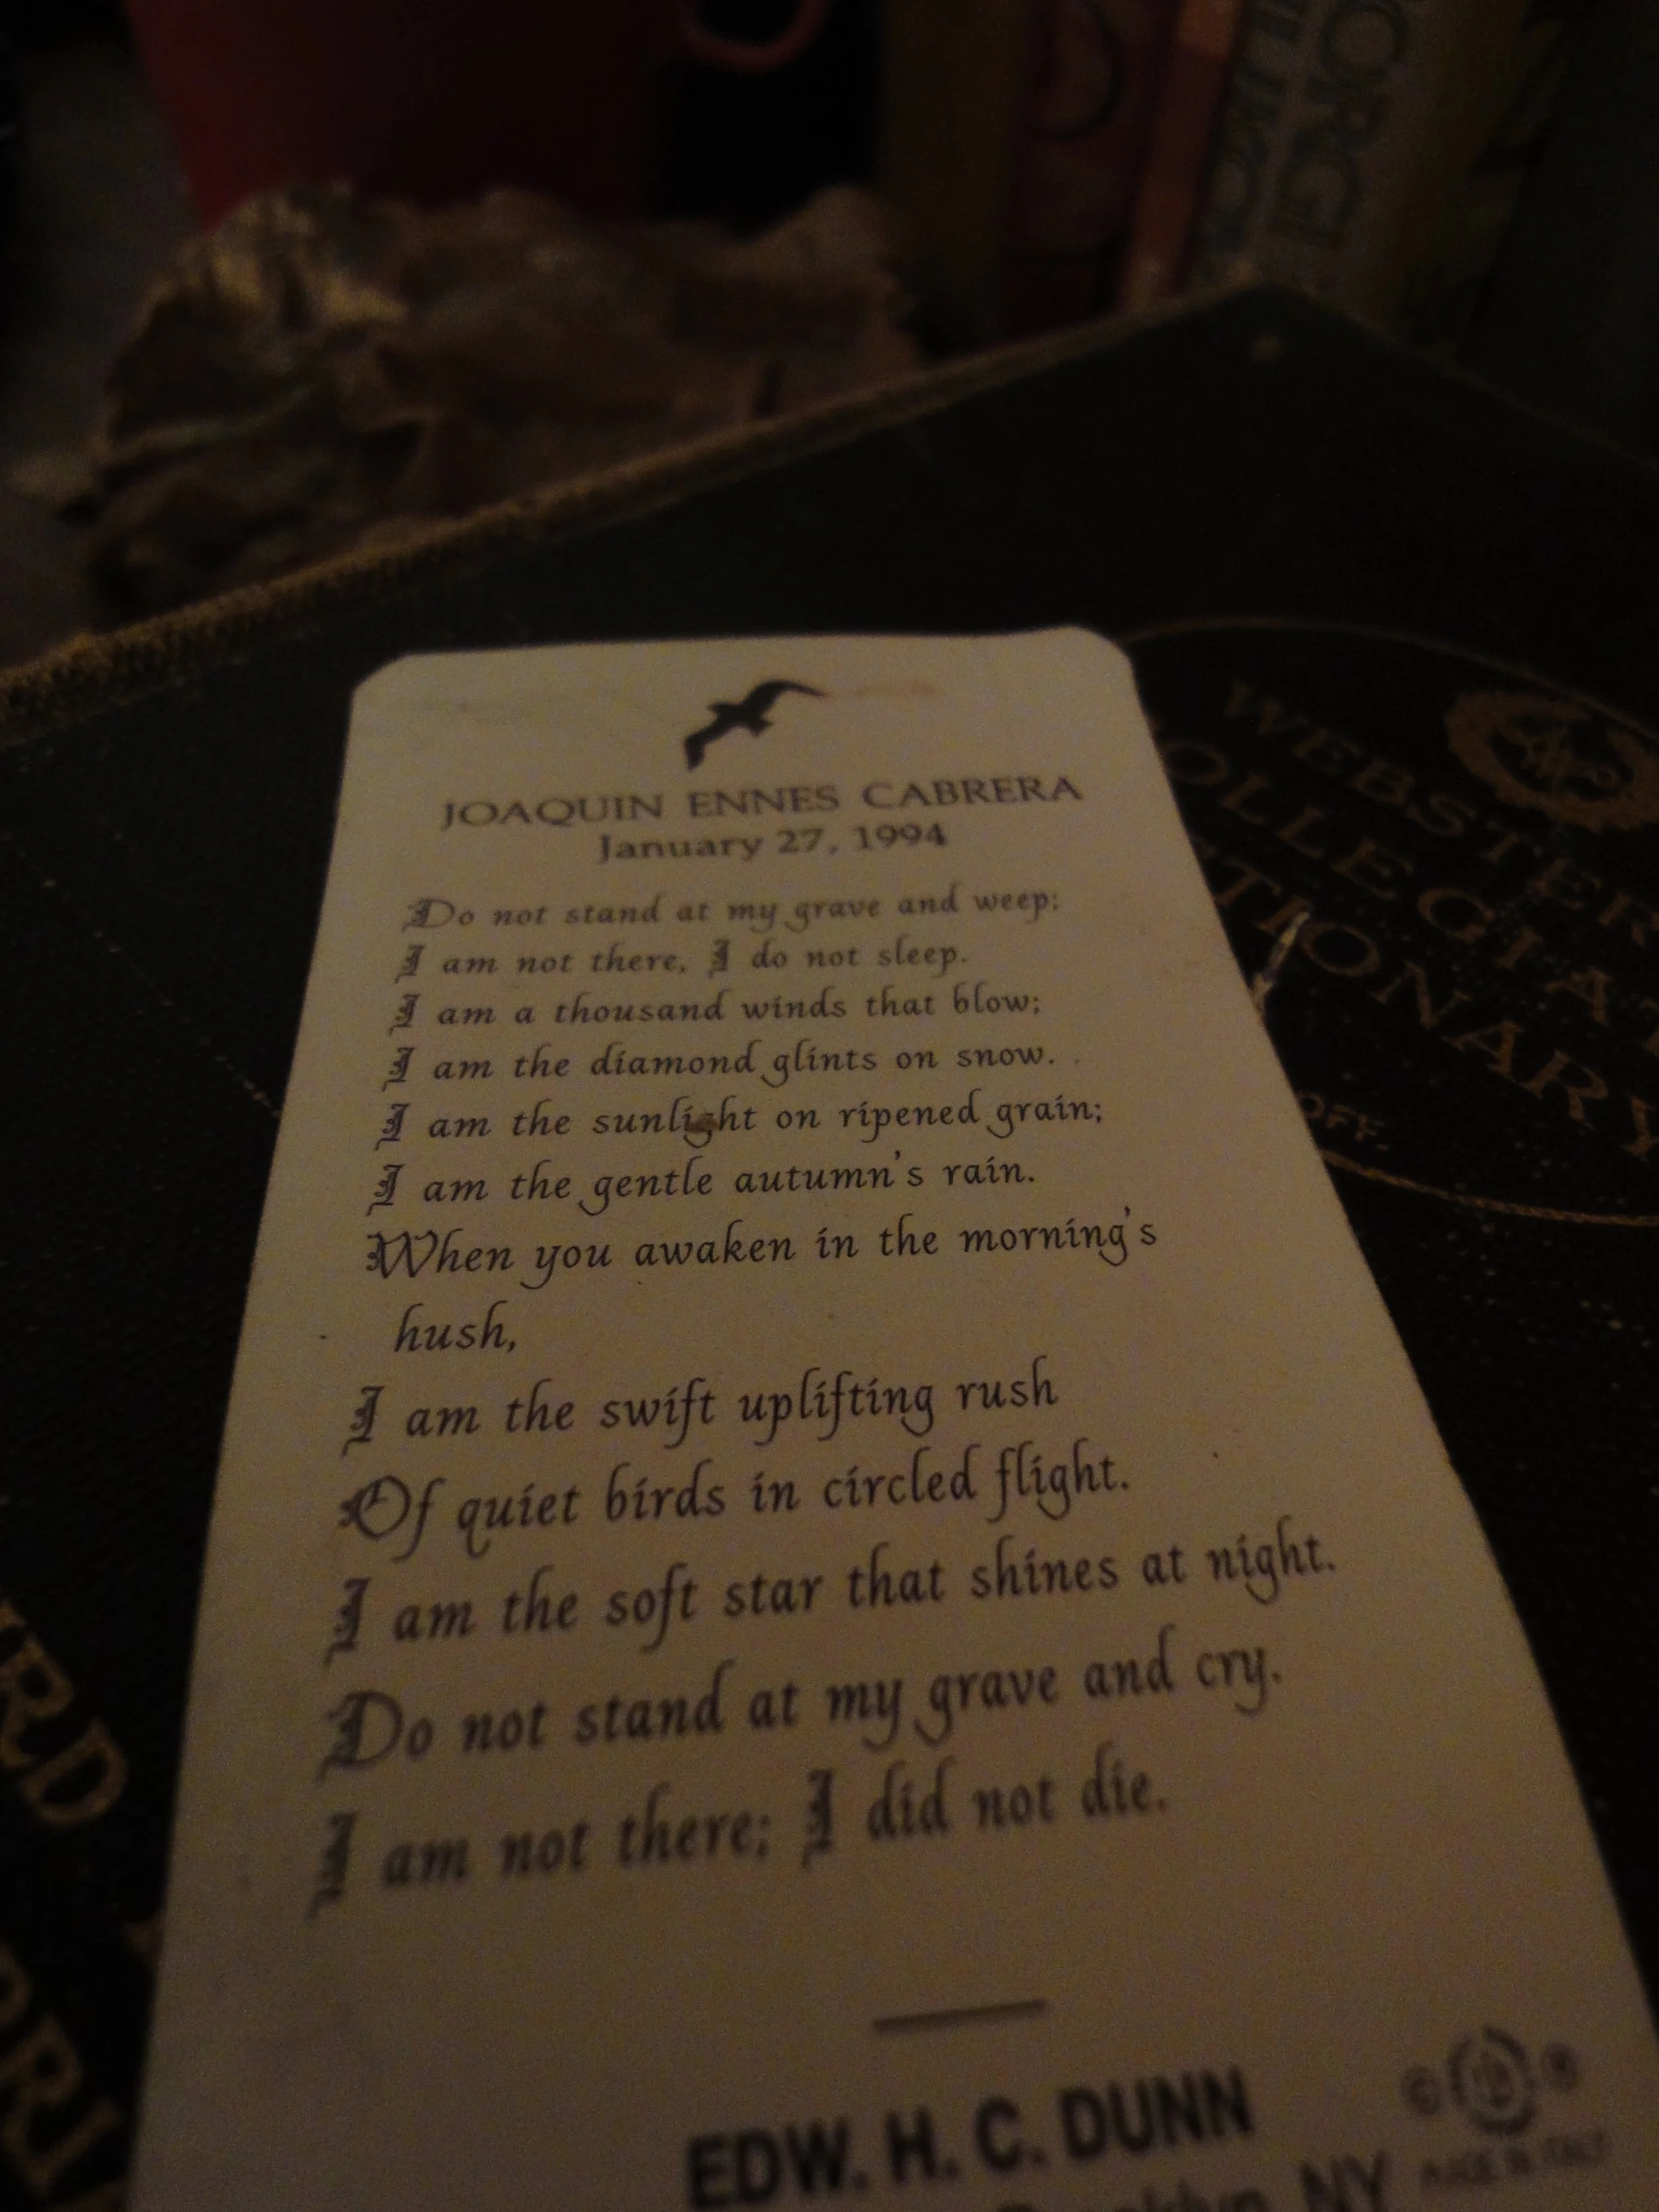 JOAQUIN ENNES CABRERA
January 27, 1994
Do not stand at my grave and weep;
I am not there, I do not sleep.
I am a thousand winds that blow;
I am the diamond glints on snow.
I am the sunlight on ripened grain;
I am the gentle autumn's rain.
When you awaken in the morning's
hush,
I am the swift uplifting rush
Of quiet birds in circled flight.
I am the soft star that shines at night.
Do not stand at my grave and cry.
I am not there; I did not die.
EDW. H. C. DUNN
Brooklyn, NY
© ®
MADE IN ITALY
WEBSTER
OLLEGIAT
TIONARY
OFF.